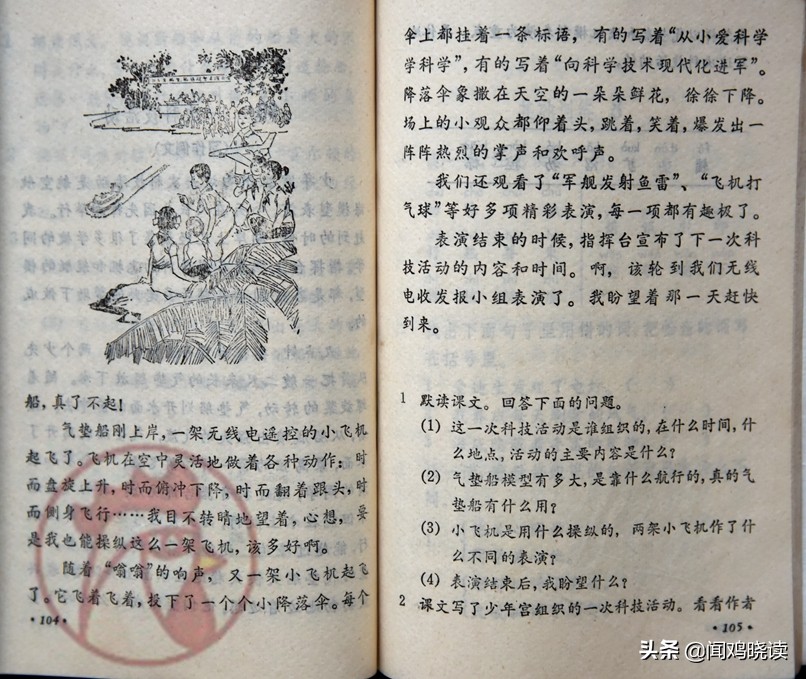 船，真了不起！
气垫船刚上岸，一架无线电遥控的小飞机
起飞了。飞机在空中灵活地做着各种动作：时
而盘旋上升，时而俯冲下降，时而翻着跟头，时
而侧身飞行……我目不转睛地望着，心想，要
是我也能操纵这么一架飞机，该多好啊。
随着“嗡嗡”的响声，又一架小飞机起飞
了。它飞着飞着，投下了一个个小降落伞。每个
·104·
伞上都挂着一条标语，有的写着“从小爱科学
学科学”，有的写着“向科学技术现代化进军”。
降落伞象撒在天空的一朵朵鲜花，徐徐下降。
场上的小观众都仰着头，跳着，笑着，爆发出一
阵阵热烈的掌声和欢呼声。
我们还观看了“军舰发射鱼雷”、“飞机打
气球”等好多项精彩表演，每一项都有趣极了。
表演结束的时候，指挥台宣布了下一次科
技活动的内容和时间。啊，该轮到我们无线
电收发报小组表演了。我盼望着那一天赶快
到来。
1 默读课文。回答下面的问题。
(1) 这一次科技活动是谁组织的，在什么时间，什
么地点，活动的主要内容是什么？
(2) 气垫船模型有多大，是靠什么航行的，真的气
垫船有什么用？
(3) 小飞机是用什么操纵的，两架小飞机作了什
么不同的表演？
(4) 表演结束后，我盼望什么？
2 课文写了少年宫组织的一次科技活动。看看作者
·105·
头条 @闻鸡晓读